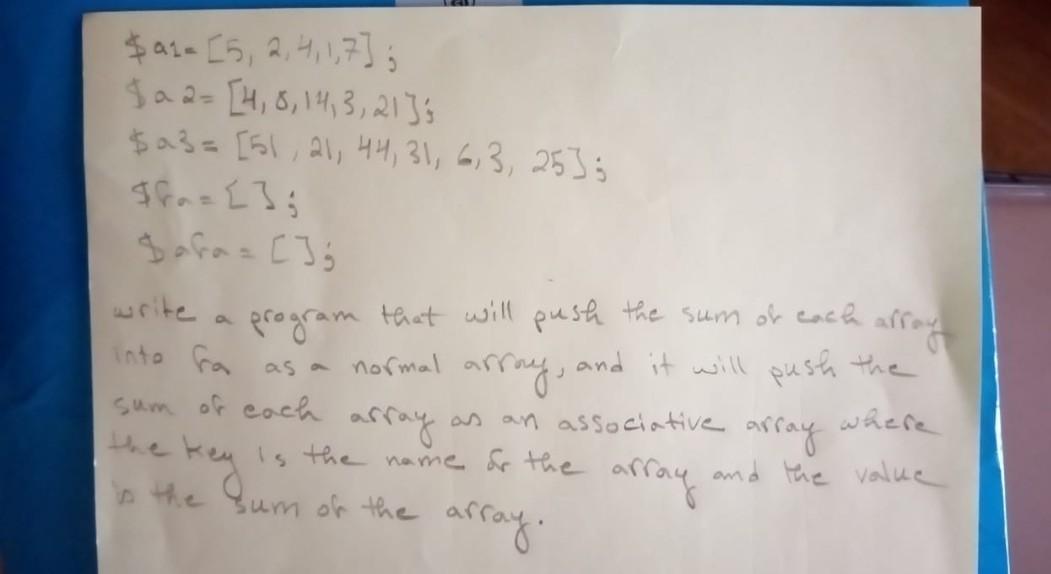 $a1= [5, 2,4,1,7];
$a2= [4,8,14,3,21];
$a3= [51, 21, 44, 31, 6,3, 25];
$fa= [];
$afa= [];
write a program that will push the sum of each array
into fa as a normal array, and it will push the
sum of each array as an associative array where
the key is the name of the array and the value
is the sum of the array.